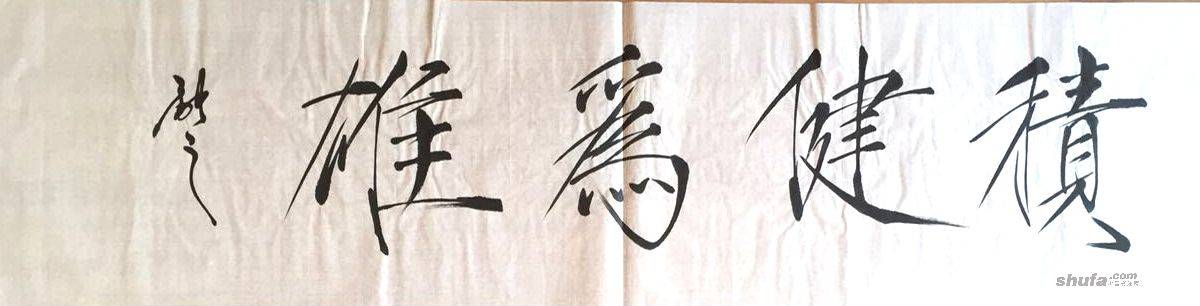 積健為雄
shufa.com